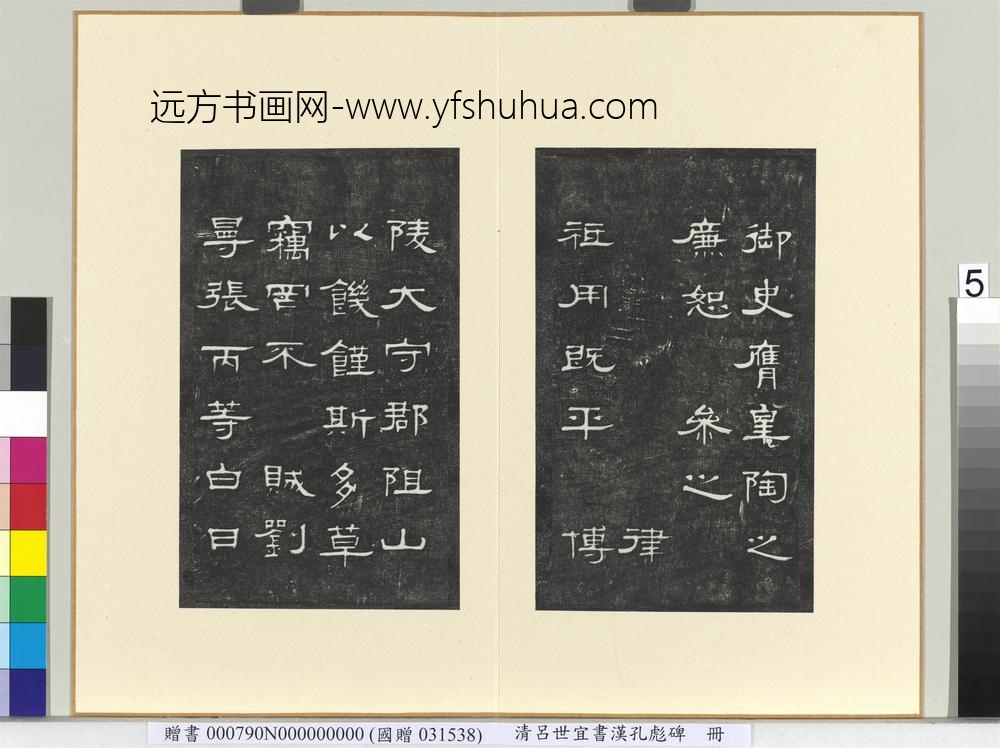 远方书画网-www.yfshuhua.com
御史膺皋陶之
廉恕 參之
律
祖用既平 博
陵大守郡阻山
以饑饉斯多草
竊罔不 賊劉
曼張丙等白日
5
贈書 000790N000000000 (國贈 031538) 清呂世宜書漢孔彪碑 冊